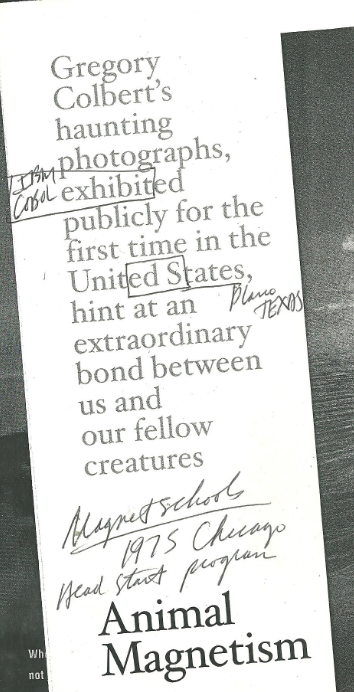 Gregory
Colbert's
haunting
photographs,
IBM
Cobol
exhibited
publicly for the
first time in the
United States,
Plano
TEXAS
hint at an
extraordinary
bond between
us and
our fellow
creatures
Magnet schools
1975 Chicago
Head Start program
Animal
Magnetism
not